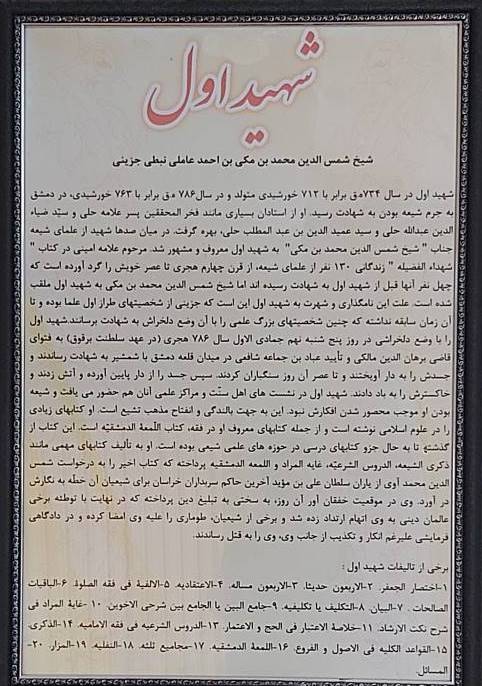 شهید اول
شیخ شمس الدین محمد بن مکی بن احمد عاملی نبطی جزینی
شهید اول در سال ۷۳۴ه.ق برابر با ۷۱۲ خورشیدی متولد و در سال ۷۸۶ ه.ق برابر با ۷۶۳ خورشیدی، در دمشق
به جرم شیعه بودن به شهادت رسید. او از استادان بسیاری مانند فخر المحققین پسر علامه حلی و سیّد ضیاء
الدین عبدالله حلی و سید عمید الدین بن عبد المطلب حلی، بهره گرفت. در میان صدها شهید از علمای شیعه
جناب " شیخ شمس الدین محمد بن مکی" به شهید اول معروف و مشهور شد. مرحوم علامه امینی در کتاب "
شهداء الفضیله " زندگانی ۱۳۰ نفر از علمای شیعه، از قرن چهارم هجری تا عصر خویش را گرد آورده است که
چهل نفر آنها قبل از شهید اول به شهادت رسیده اند اما شیخ شمس الدین محمد بن مکی به شهید اول ملقب
شده است. علت این نامگذاری و شهرت به شهید اول این است که جزینی از شخصیتهای طراز اول علما بوده و تا
آن زمان سابقه نداشته که چنین شخصیتهای بزرگ علمی را با آن وضع دلخراش به شهادت برسانند.شهید اول
را با وضع دلخراشی در روز پنج شنبه نهم جمادی الاول سال ۷۸۶ هجری (در عهد سلطنت برقوق) به فتوای
قاضی برهان الدین مالکی و تأیید عباد بن جماعه شافعی در میدان قلعه دمشق با شمشیر به شهادت رساندند و
جسدش را به دار آویختند و تا عصر آن روز سنگباران کردند. سپس جسد را از دار پایین آورده و آتش زدند و
خاکسترش را به باد دادند. شهید اول در نشست های اهل سنّت و مراکز علمی آنان هم حضور می یافت و شیعه
بودن او موجب محصور شدن افکارش نبود. این به جهت بالندگی و انفتاح مذهب تشیع است. او کتابهای زیادی
را در علوم اسلامی نوشته است و از جمله کتابهای معروف او در فقه، کتاب اللّمعة الدمشقیّه است. این کتاب از
گذشته تا به حال جزو کتابهای درسی در حوزه های علمی شیعی بوده است. او به تألیف کتابهای مهمی مانند
ذکری الشیعه، الدروس الشرعیّه، غایه المراد و اللمعه الدمشقیه پرداخته که کتاب اخیر را به درخواست شمس
الدین محمد آوی از یاران سلطان علی بن مؤید آخرین حاکم سربداران خراسان برای شیعیان آن خطّه به نگارش
در آورد. وی در موقعیت خفقان آور آن روز، به سختی به تبلیغ دین پرداخته که در نهایت با توطئه برخی
عالمان دینی به وی اتهام ارتداد زده شد و برخی از شیعیان، طوماری را علیه وی امضا کرده و در دادگاهی
فرمایشی علیرغم انکار و تکذیب از جانب وی، وی را به قتل رساندند.
برخی از تالیفات شهید اول :
۱-اختصار الجعفر. ۲-الاربعون حدیثا. ۳-الاربعون مساله. ۴-الاعتقادیه. ۵-الالفیة فی فقه الصلوة. ۶-الباقیات
الصالحات . ۷-البیان. ۸-التکلیف یا تکلیفیه. ۹-جامع البین یا الجامع بین شرحی الاخوین. ۱۰-غایة المراد فی
شرح نکت الارشاد. ۱۱-خلاصة الاعتبار فی الحج و الاعتمار. ۱۳-الدروس الشرعیه فی فقه الامامیه. ۱۴-الذکری.
۱۵-القواعد الکلیه فی الاصول و الفروع. ۱۶-اللمعة الدمشقیه. ۱۷-مجامیع ثلثه. ۱۸-النفلیه. ۱۹-المزار. ۲۰-
المسائل.